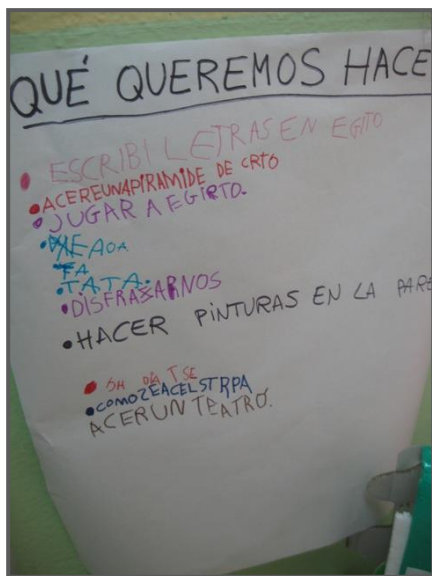 QUÉ QUEREMOS HACE
ESCRIBI LETRAS EN EGITO
ACEREUNAPIRAMIDE DE CRTO
JUGAR A EGIRTO.
FA
TATA.
DISFRAZARNOS
HACER PINTURAS EN LA PARE
DÍA TSE
COMOZEACELSTRPA
ACERUNTEATRO.